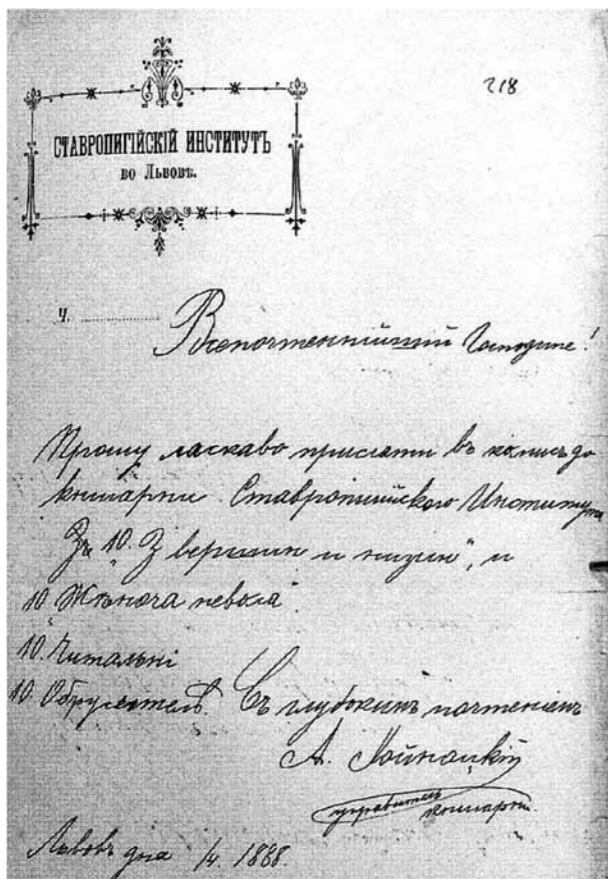 218
СТАВРОПИГІЙСКІЙ ИНСТИТУТЪ
во Львовѣ.
Ч.
Всепочтеннѣйшій Господине!
Прошу ласкаво прислати въ комисъ до
книгарни Ставропигійского Института
10. "З вершин и низин", и
10 "Жѣноча неволя"
10. Читальнѣ
10. Обрусителѣ. Съ глубокимъ почтеніемъ
А.
управитель
книгарни.
Львовъ дня 1/4. 1888.